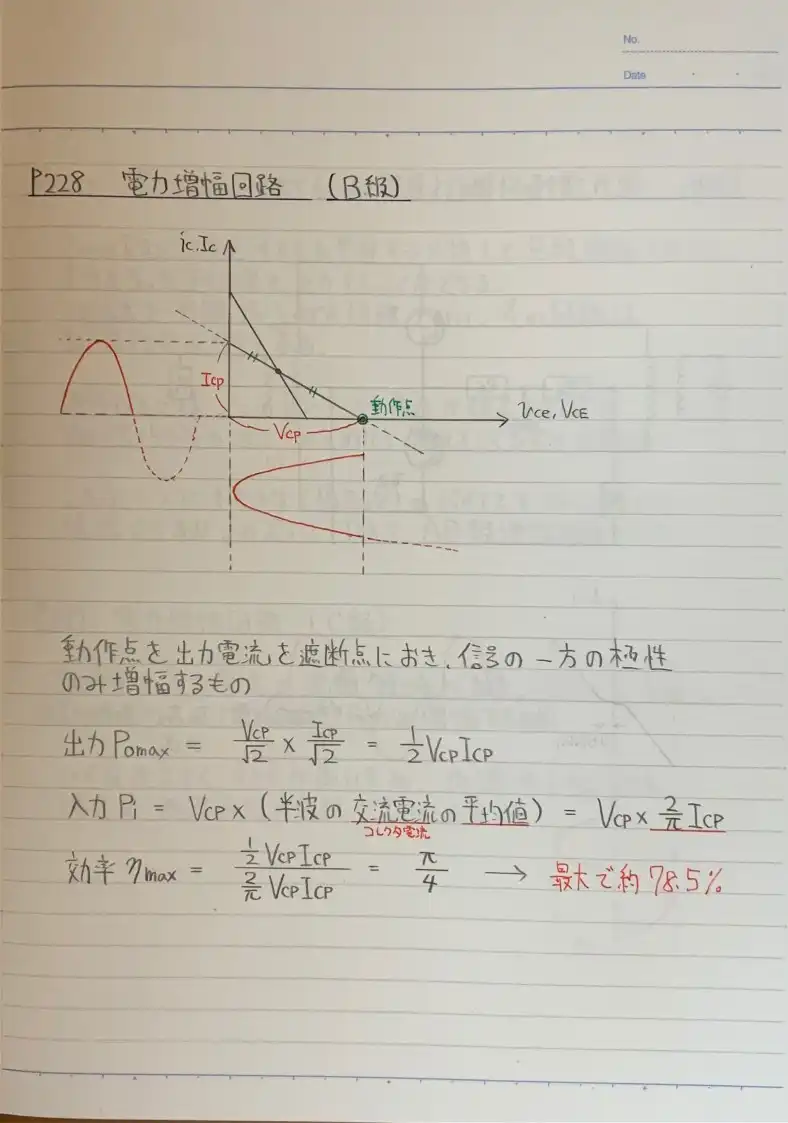 No.
Date
P228 電力増幅回路 (B級)
ic, Ic
Icp
動作点
vCE, VCE
Vcp
動作点を出力電流を遮断点におき、信号の一方の極性
のみ増幅するもの
出力 Pomax = Vcp/√2 × Icp/√2 = 1/2 Vcp Icp
入力 Pi = Vcp × (半波の交流電流の平均値) = Vcp × 2/π Icp
コレクタ電流
効率 ηmax = (1/2 Vcp Icp)/(2/π Vcp Icp) = π/4 → 最大で約78.5%